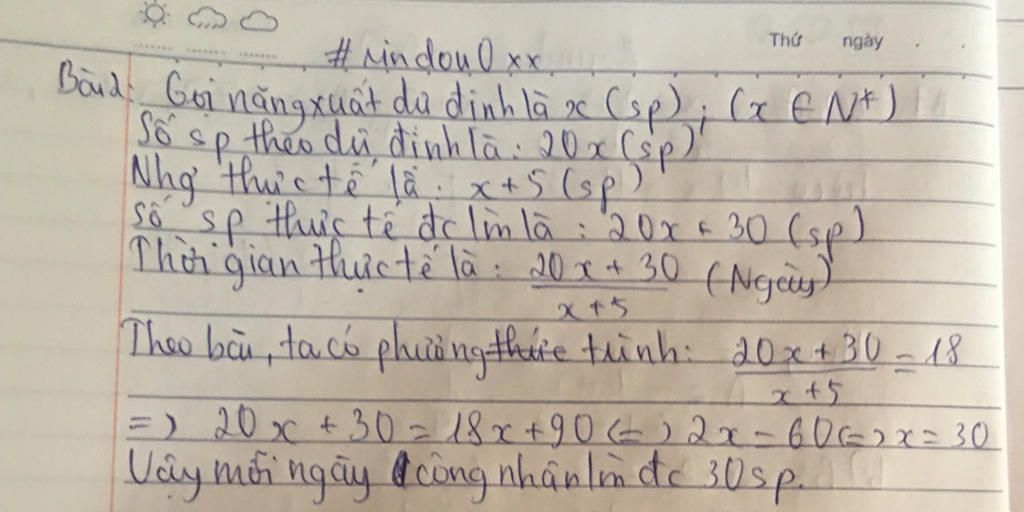 Thứ ngày
#Lindou0xx
Bài 2: Gọi năng xuất dự định là x (sp); (x ∈ N*)
Số sp theo dự định là: 20x (sp)
Nhg thực tế là: x+5 (sp)
Số sp thực tế đc lm là: 20x + 30 (sp)
Thời gian thực tế là: 20x + 30 / x+5 (Ngày)
Theo bài, ta có phương thức trình: 20x + 30 / x+5 = 18
=> 20x + 30 = 18x + 90 <=> 2x = 60 <=> x = 30
Vậy mỗi ngày công nhân lm đc 30 sp.